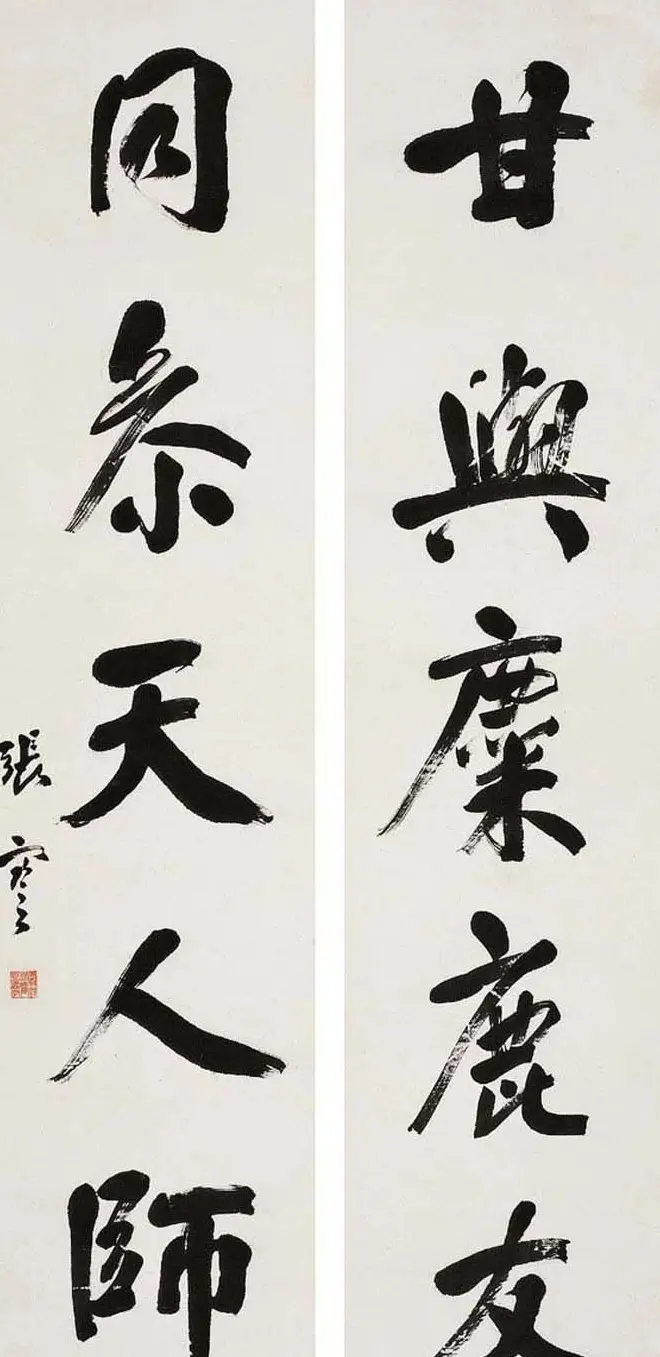 甘與麋鹿友
同參天人師
張謇